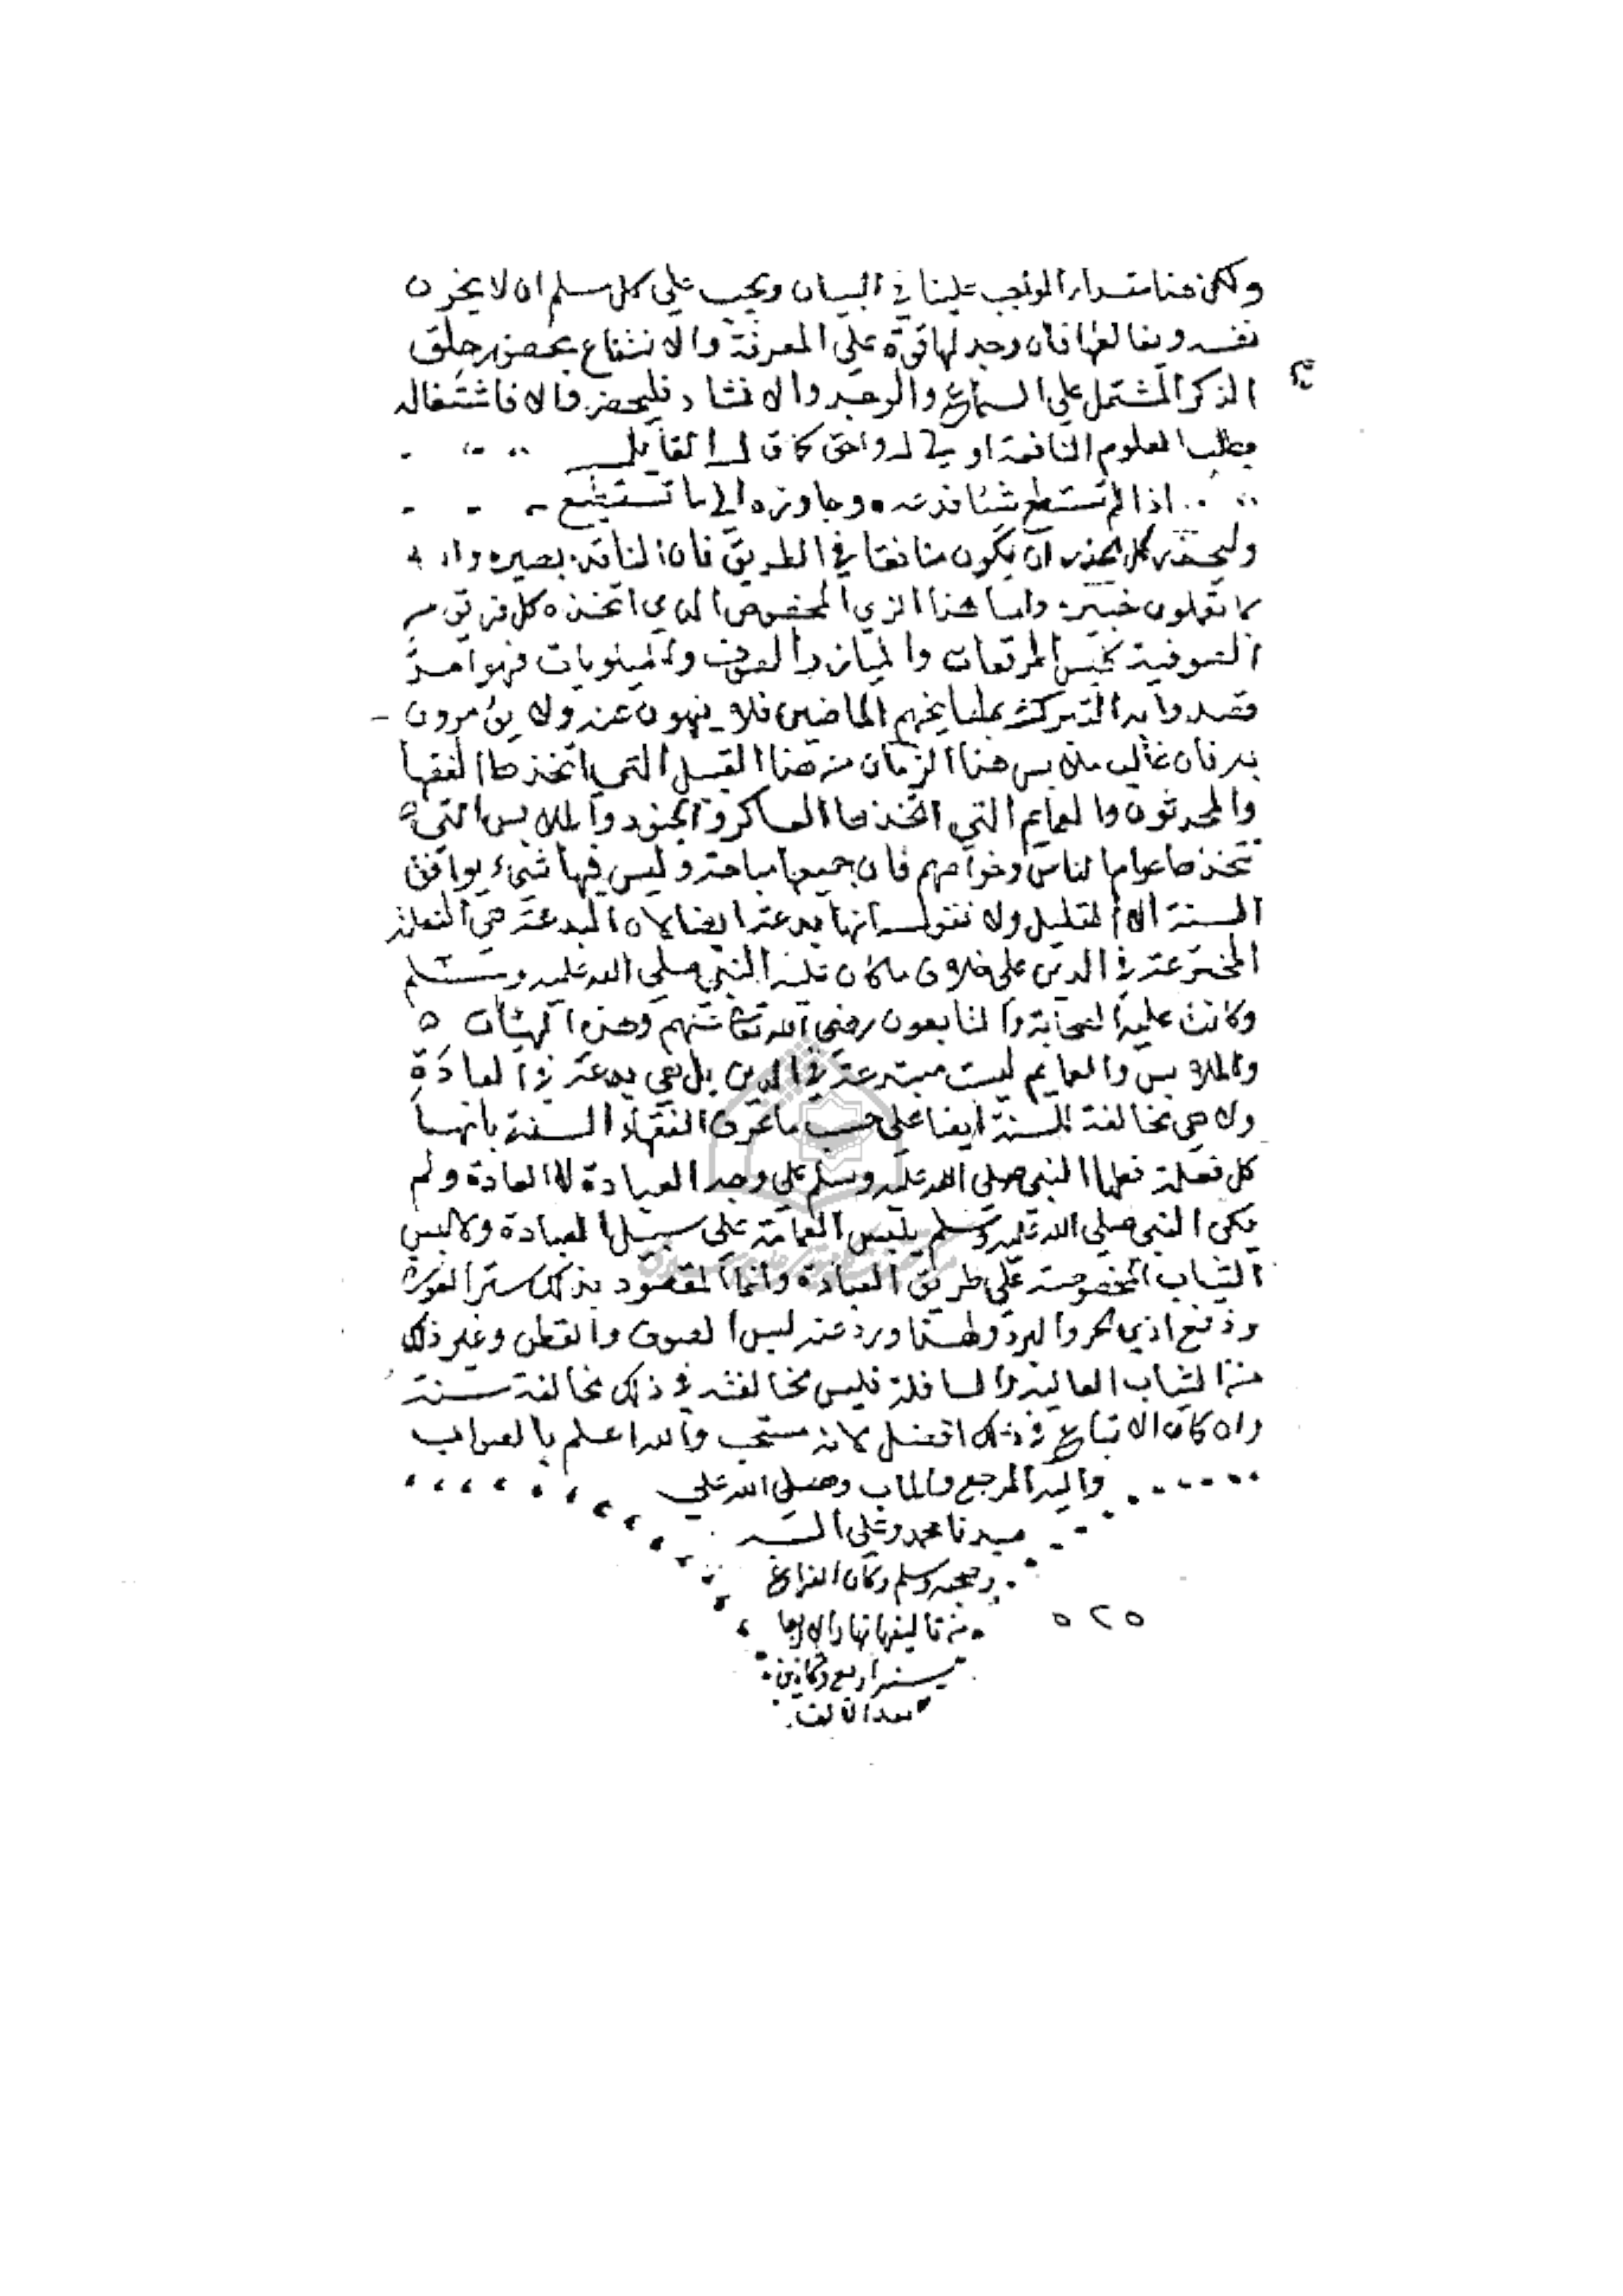 ولكن هنا مقدار الواجب علينا في البيان ويجب علي كل مسلم ان لا يخون
نفسه ويغالطها فان وجد لها قوة علي المعرفة والانتفاع بحضور حلق
الذكر المشتمل علي السماع والوجد والانشاد فليحضر والا فاشتغاله
بطلب العلوم النافعة اولي له واحق كما قال القايل
اذا لم تستطع شيئا فدعه وجاوزه الي ما تستطيع
وليحذر كل الحذر ان يكون منافقا في الطريق فان الناقد بصير والله
بما تعملون خبير واما هذا الزي المخصوص الذي اتخذه كل فريق من
الصوفية كلبس المرقعات والميازر الصوف والميلويات فهو امر
قصدوا به التبرك بمشايخهم الماضين فلا ينهون عنه ولا يؤمرون
به فان غالب ملابس هذا الزمان من هذا القبيل التي اتخذها الفقها
والمحدثون والعمايم التي اتخذها العساكر والجنود والملابس التي
تتخذها عوام الناس وخواصهم فان جميعها مباحة وليس فيها شيء يوافق
السنة الا القليل ولا نقول انها بدعة ايضا لان البدعة هي الفعلة
المخترعة في الدين علي خلاف ما كان عليه النبي صلي الله عليه وسلم
وكانت عليه الصحابة والتابعون رضي الله تعا عنهم وهذه الهيئات
والملابس والعمايم ليست مبتدعة في الدين بل هي بدعة في العادة
ولا هي مخالفة للسنة ايضا علي حسب ما عرف الفقهاء السنة بانها
كل فعلة فعلها النبي صلي الله عليه وسلم علي وجه العبادة لا العادة ولم
يكن النبي صلي الله عليه وسلم يلبس العمامة علي سبيل العبادة ولا لبس
الثياب المخصوصة علي طريق العبادة وانما المقصود بذلك ستر العورة
ودفع اذي الحر والبرد ولهذا ورد عنه لبس الصوف والقطن وغير ذلك
من الثياب العالية والسافلة فليس مخالفته في ذلك مخالفة سنة
وان كان الاتباع في ذلك افضل لانه مستحب والله اعلم بالصواب
واليه المرجع والماب وصلي الله علي
سيدنا محمد وعلي اله
وصحبه وسلم وكان الفراغ
من تاليفها نهار الاربعا
سنة اربع وثمانين
بعد الالف